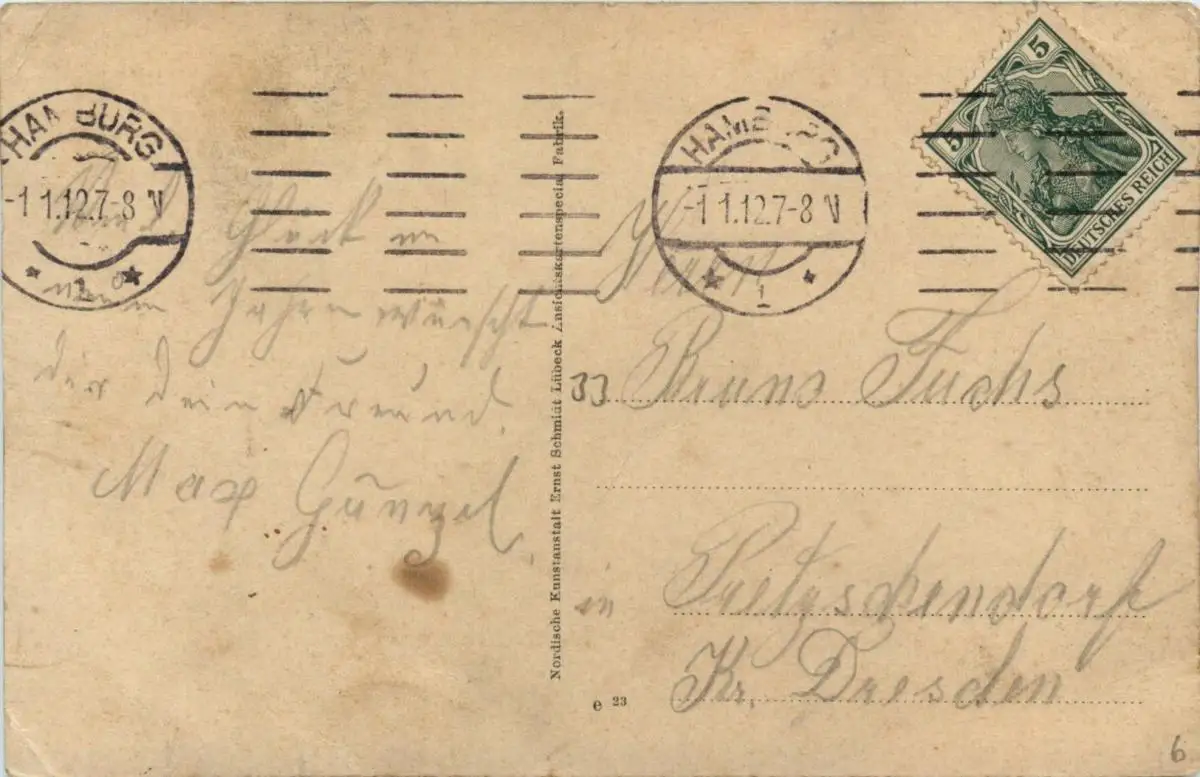 HAMBURG
-1 1.12.7-8 V
* 1 *
HAMBURG
-1 1.12.7-8 V
* 1 *
5
5
DEUTSCHES REICH
Viel Glück im
neuen Jahre wünscht
dir dein Freund.
Max Günzel.
Nordische Kunstanstalt Ernst Schmidt Lübeck Ansichtskartenspecial Fabrik.
Herrn
33 Bruno Fuchs
in Pretzschendorf
Kr. Dresden
e 23
6